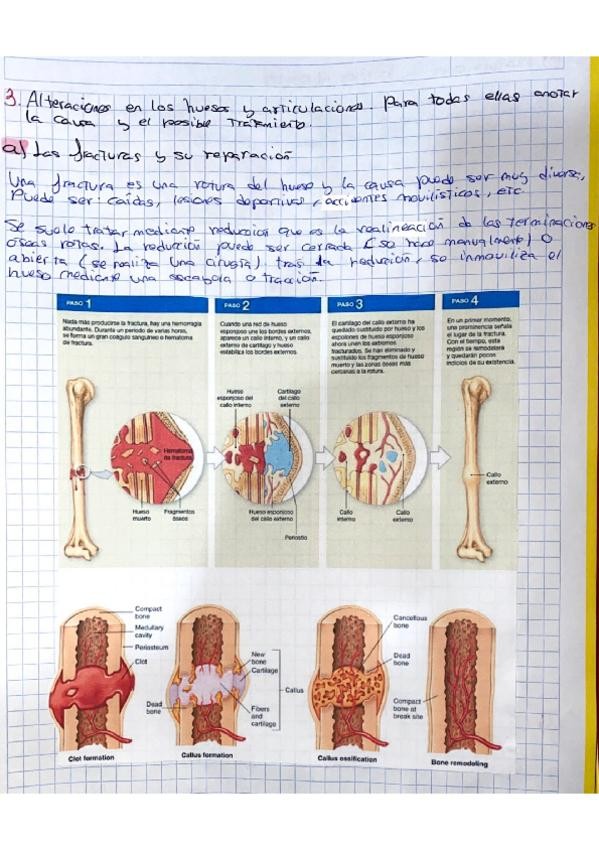 3. Alteraciones en los huesos y articulaciones. Para todas ellas anotar
la causa y el posible tratamiento.
a) Las fracturas y su reparación
Una fractura es una rotura del hueso y la causa puede ser muy diversa,
Puede ser: caídas, lesiones deportivas, accidentes movilísticos, etc.
Se suele tratar mediante reducción que es la realineación de las terminaciones
óseas rotas. La reducción puede ser cerrada (se hace manualmente) o
abierta (se realiza una cirugía). tras la reducción, se inmoviliza el
hueso mediante una escayola o tracción.
PASO 1
Nada más producirse la fractura, hay una hemorragia
abundante. Durante un período de varias horas,
se forma un gran coágulo sanguíneo o hematoma
de fractura.
Hematoma
de fractura
Hueso
muerto
Fragmentos
óseos
PASO 2
Cuando una red de hueso
esponjoso une los bordes externos,
aparece un callo interno, y un callo
externo de cartílago y hueso
estabiliza los bordes externos.
Hueso
esponjoso del
callo interno
Cartílago
del callo
externo
Hueso esponjoso
del callo externo
Periostio
PASO 3
El cartílago del callo externo ha
quedado sustituido por hueso y los
espolones de hueso esponjoso
ahora unen los extremos
fracturados. Se han eliminado y
sustituido los fragmentos de hueso
muerto y las zonas óseas más
cercanas a la rotura.
Callo
interno
Callo
externo
PASO 4
En un primer momento,
una prominencia señala
el lugar de la fractura.
Con el tiempo, esta
región se remodelará
y quedarán pocos
indicios de su existencia.
Callo
externo
Compact
bone
Medullary
cavity
Periosteum
Clot
Clot formation
Dead
bone
New
bone
Cartilage
Fibers
and
cartilage
Callus
Callus formation
Cancellous
bone
Dead
bone
Compact
bone at
break site
Callus ossification
Bone remodeling